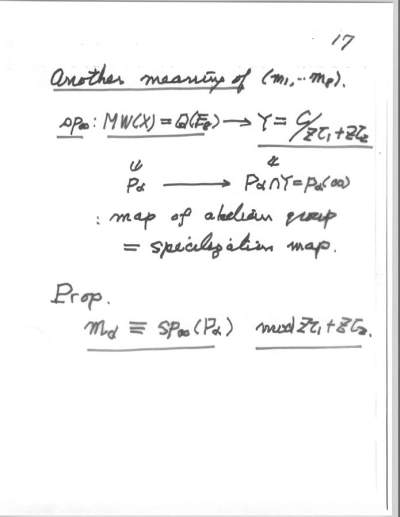 17
Another meaning of (m₁, ‥ m₈).
sp∞ : MW(X) = Q(E₈) → Y = C/Zτ₁+Zτ₂
Pα ⟶ Pα∩Y = pα(∞)
: map of abelian group
= specilization map.
Prop.
mα ≡ sp∞(Pα) mod Zτ₁+Zτ₂.